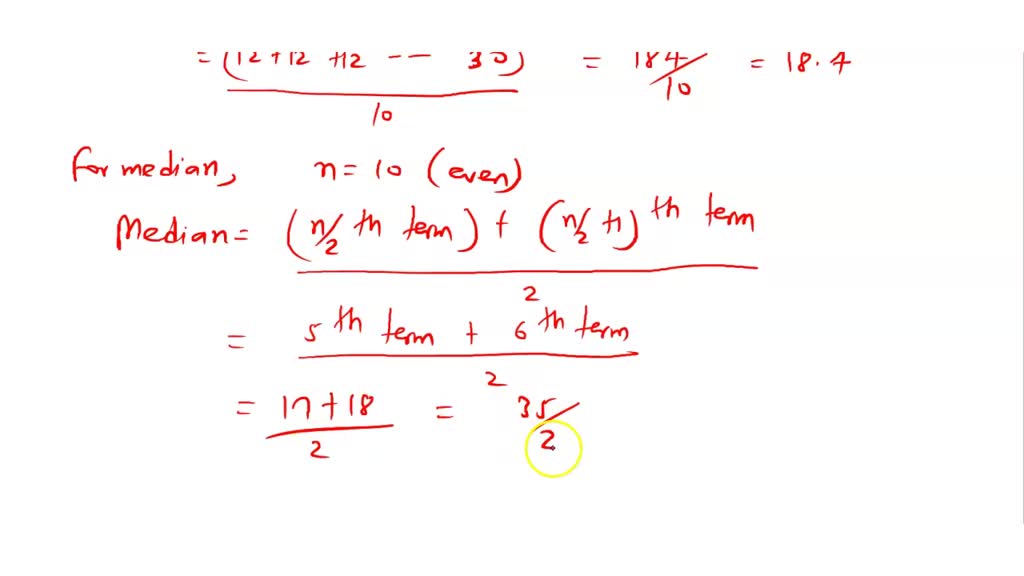 = (12 + 12 + 12 -- 30) / 10 = 184/10 = 18.4
For median, n = 10 (even)
Median = (n/2 th term) + (n/2 +1)th term / 2
= 5th term + 6th term / 2
= 17 + 18 / 2 = 35/2